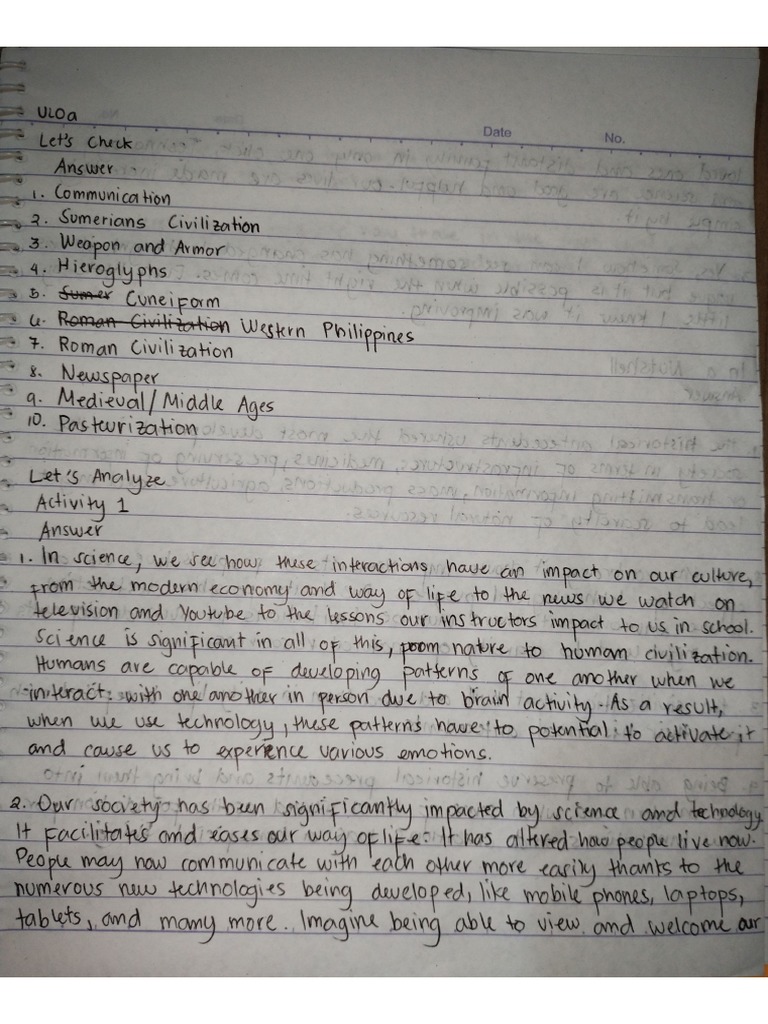 ULOa
Date No.
Let's Check
Answer
1. Communication
2. Sumerians Civilization
3. Weapon and Armor
4. Hieroglyphs
5. Sumer Cuneiform
6. Roman Civilization Western Philippines
7. Roman Civilization
8. Newspaper
9. Medieval/Middle Ages
10. Pasteurization
Let's Analyze
Activity 1
Answer
1. In science, we see how these interactions have an impact on our culture,
from the modern economy and way of life to the news we watch on
television and Youtube to the lessons our instructors impact to us in school.
Science is significant in all of this, from nature to human civilization.
Humans are capable of developing patterns of one another when we
interact with one another in person due to brain activity. As a result,
when we use technology, these patterns have to potential to activate it
and cause us to experience various emotions.
2. Our society has been significantly impacted by science and technology
It facilitates and eases our way of life. It has altered how people live now.
People may now communicate with each other more easily thanks to the
numerous new technologies being developed, like mobile phones, laptops,
tablets, and many more. Imagine being able to view and welcome our